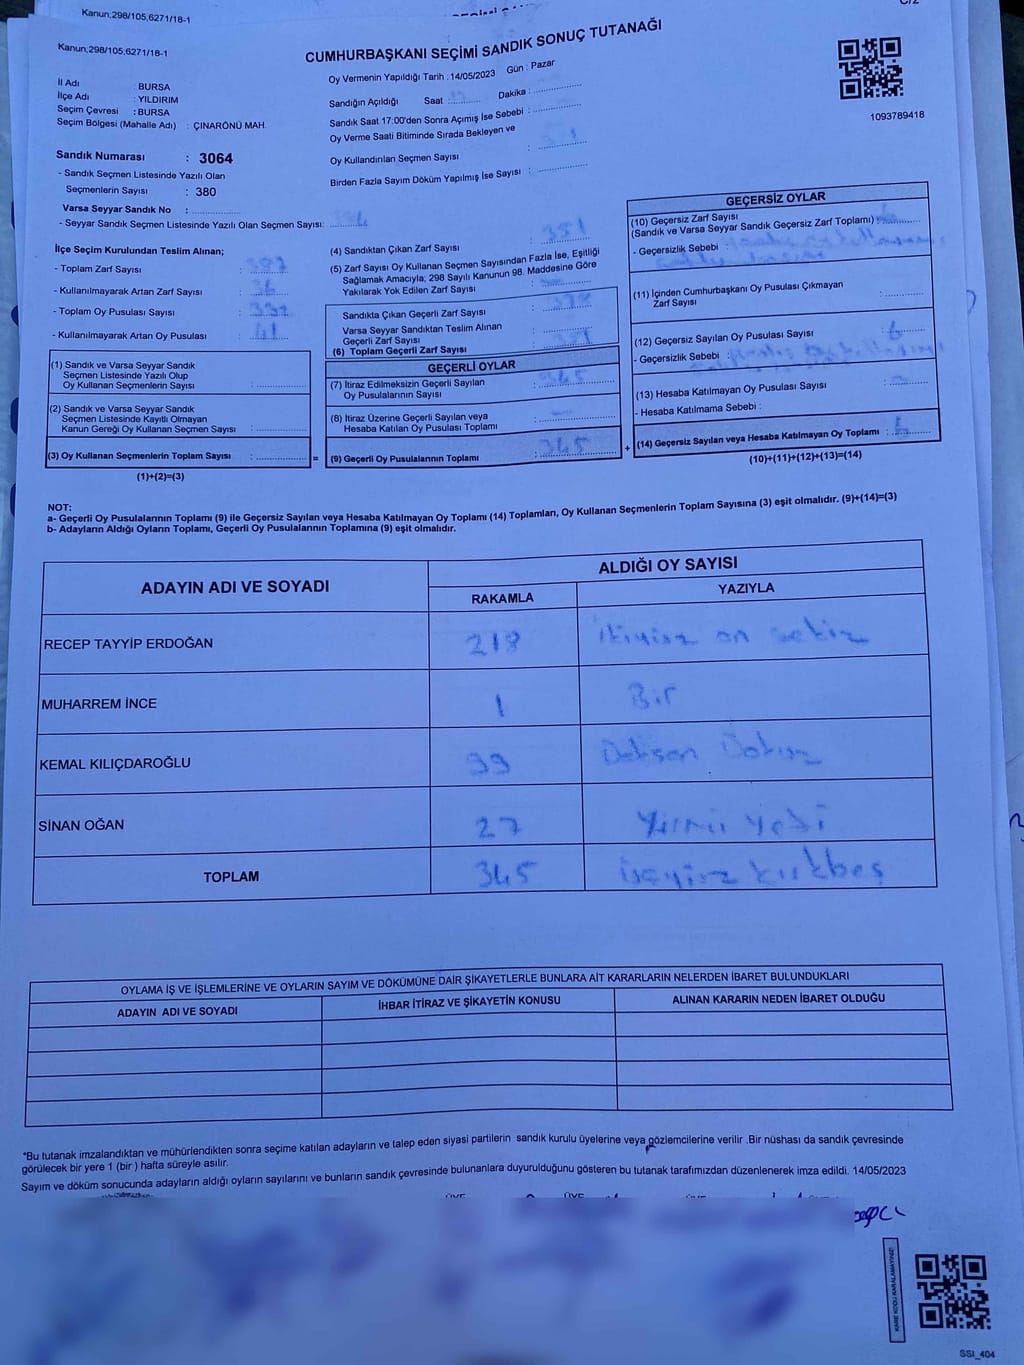 Kanun;298/105,6271/18-1
C/2
Kanun;298/105,6271/18-1
CUMHURBAŞKANI SEÇİMİ SANDIK SONUÇ TUTANAĞI
İl Adı : BURSA
İlçe Adı : YILDIRIM
Seçim Çevresi : BURSA
Seçim Bölgesi (Mahalle Adı) : ÇINARÖNÜ MAH.
Oy Vermenin Yapıldığı Tarih : 14/05/2023 Gün : Pazar
Sandığın Açıldığı Saat : Dakika :
Sandık Saat 17:00'den Sonra Açımış İse Sebebi :
Oy Verme Saati Bitiminde Sırada Bekleyen ve
Oy Kullandırılan Seçmen Sayısı :
Birden Fazla Sayım Döküm Yapılmış İse Sayısı :
1093789418
Sandık Numarası : 3064
- Sandık Seçmen Listesinde Yazılı Olan
Seçmenlerin Sayısı : 380
Varsa Seyyar Sandık No :
- Seyyar Sandık Seçmen Listesinde Yazılı Olan Seçmen Sayısı:
İlçe Seçim Kurulundan Teslim Alınan;
- Toplam Zarf Sayısı :
- Kullanılmayarak Artan Zarf Sayısı : 36
- Toplam Oy Pusulası Sayısı :
- Kullanılmayarak Artan Oy Pusulası : 41
(1) Sandık ve Varsa Seyyar Sandık
Seçmen Listesinde Yazılı Olup
Oy Kullanan Seçmenlerin Sayısı :
(2) Sandık ve Varsa Seyyar Sandık
Seçmen Listesinde Kayıtlı Olmayan
Kanun Gereği Oy Kullanan Seçmen Sayısı :
(3) Oy Kullanan Seçmenlerin Toplam Sayısı : =
(1)+(2)=(3)
(4) Sandıktan Çıkan Zarf Sayısı : 351
(5) Zarf Sayısı Oy Kullanan Seçmen Sayısından Fazla İse, Eşitliği
Sağlamak Amacıyla; 298 Sayılı Kanunun 98. Maddesine Göre
Yakılarak Yok Edilen Zarf Sayısı :
Sandıkta Çıkan Geçerli Zarf Sayısı :
Varsa Seyyar Sandıktan Teslim Alınan
Geçerli Zarf Sayısı :
(6) Toplam Geçerli Zarf Sayısı : 351
GEÇERLİ OYLAR
(7) İtiraz Edilmeksizin Geçerli Sayılan
Oy Pusulalarının Sayısı : 345
(8) İtiraz Üzerine Geçerli Sayılan veya
Hesaba Katılan Oy Pusulası Toplamı : —
(9) Geçerli Oy Pusulalarının Toplamı : 345 +
GEÇERSİZ OYLAR
(10) Geçersiz Zarf Sayısı
(Sandık ve Varsa Seyyar Sandık Geçersiz Zarf Toplamı) :
- Geçersizlik Sebebi :
(11) İçinden Cumhurbaşkanı Oy Pusulası Çıkmayan
Zarf Sayısı :
(12) Geçersiz Sayılan Oy Pusulası Sayısı : 6
- Geçersizlik Sebebi :
(13) Hesaba Katılmayan Oy Pusulası Sayısı : —
- Hesaba Katılmama Sebebi :
(14) Geçersiz Sayılan veya Hesaba Katılmayan Oy Toplamı : 6
(10)+(11)+(12)+(13)=(14)
NOT:
a- Geçerli Oy Pusulalarının Toplamı (9) ile Geçersiz Sayılan veya Hesaba Katılmayan Oy Toplamı (14) Toplamları, Oy Kullanan Seçmenlerin Toplam Sayısına (3) eşit olmalıdır. (9)+(14)=(3)
b- Adayların Aldığı Oyların Toplamı, Geçerli Oy Pusulalarının Toplamına (9) eşit olmalıdır.
ADAYIN ADI VE SOYADI ALDIĞI OY SAYISI
RAKAMLA YAZIYLA
RECEP TAYYİP ERDOĞAN 218 ikiyüz on sekiz
MUHARREM İNCE 1 Bir
KEMAL KILIÇDAROĞLU 99 Doksan Dokuz
SİNAN OĞAN 27 Yirmi Yedi
TOPLAM 345 üçyüz kırkbeş
OYLAMA İŞ VE İŞLEMLERİNE VE OYLARIN SAYIM VE DÖKÜMÜNE DAİR ŞİKAYETLERLE BUNLARA AİT KARARLARIN NELERDEN İBARET BULUNDUKLARI
ADAYIN ADI VE SOYADI İHBAR İTİRAZ VE ŞİKAYETİN KONUSU ALINAN KARARIN NEDEN İBARET OLDUĞU
*Bu tutanak imzalandıktan ve mühürlendikten sonra seçime katılan adayların ve talep eden siyasi partilerin sandık kurulu üyelerine veya gözlemcilerine verilir .Bir nüshası da sandık çevresinde
görülecek bir yere 1 (bir ) hafta süreyle asılır.
Sayım ve döküm sonucunda adayların aldığı oyların sayılarını ve bunların sandık çevresinde bulunanlara duyurulduğunu gösteren bu tutanak tarafımızdan düzenlenerek imza edildi. 14/05/2023
ÜYE ÜYE ÜYE
KARE KODU KARALAMAYINIZ!
SSI_404